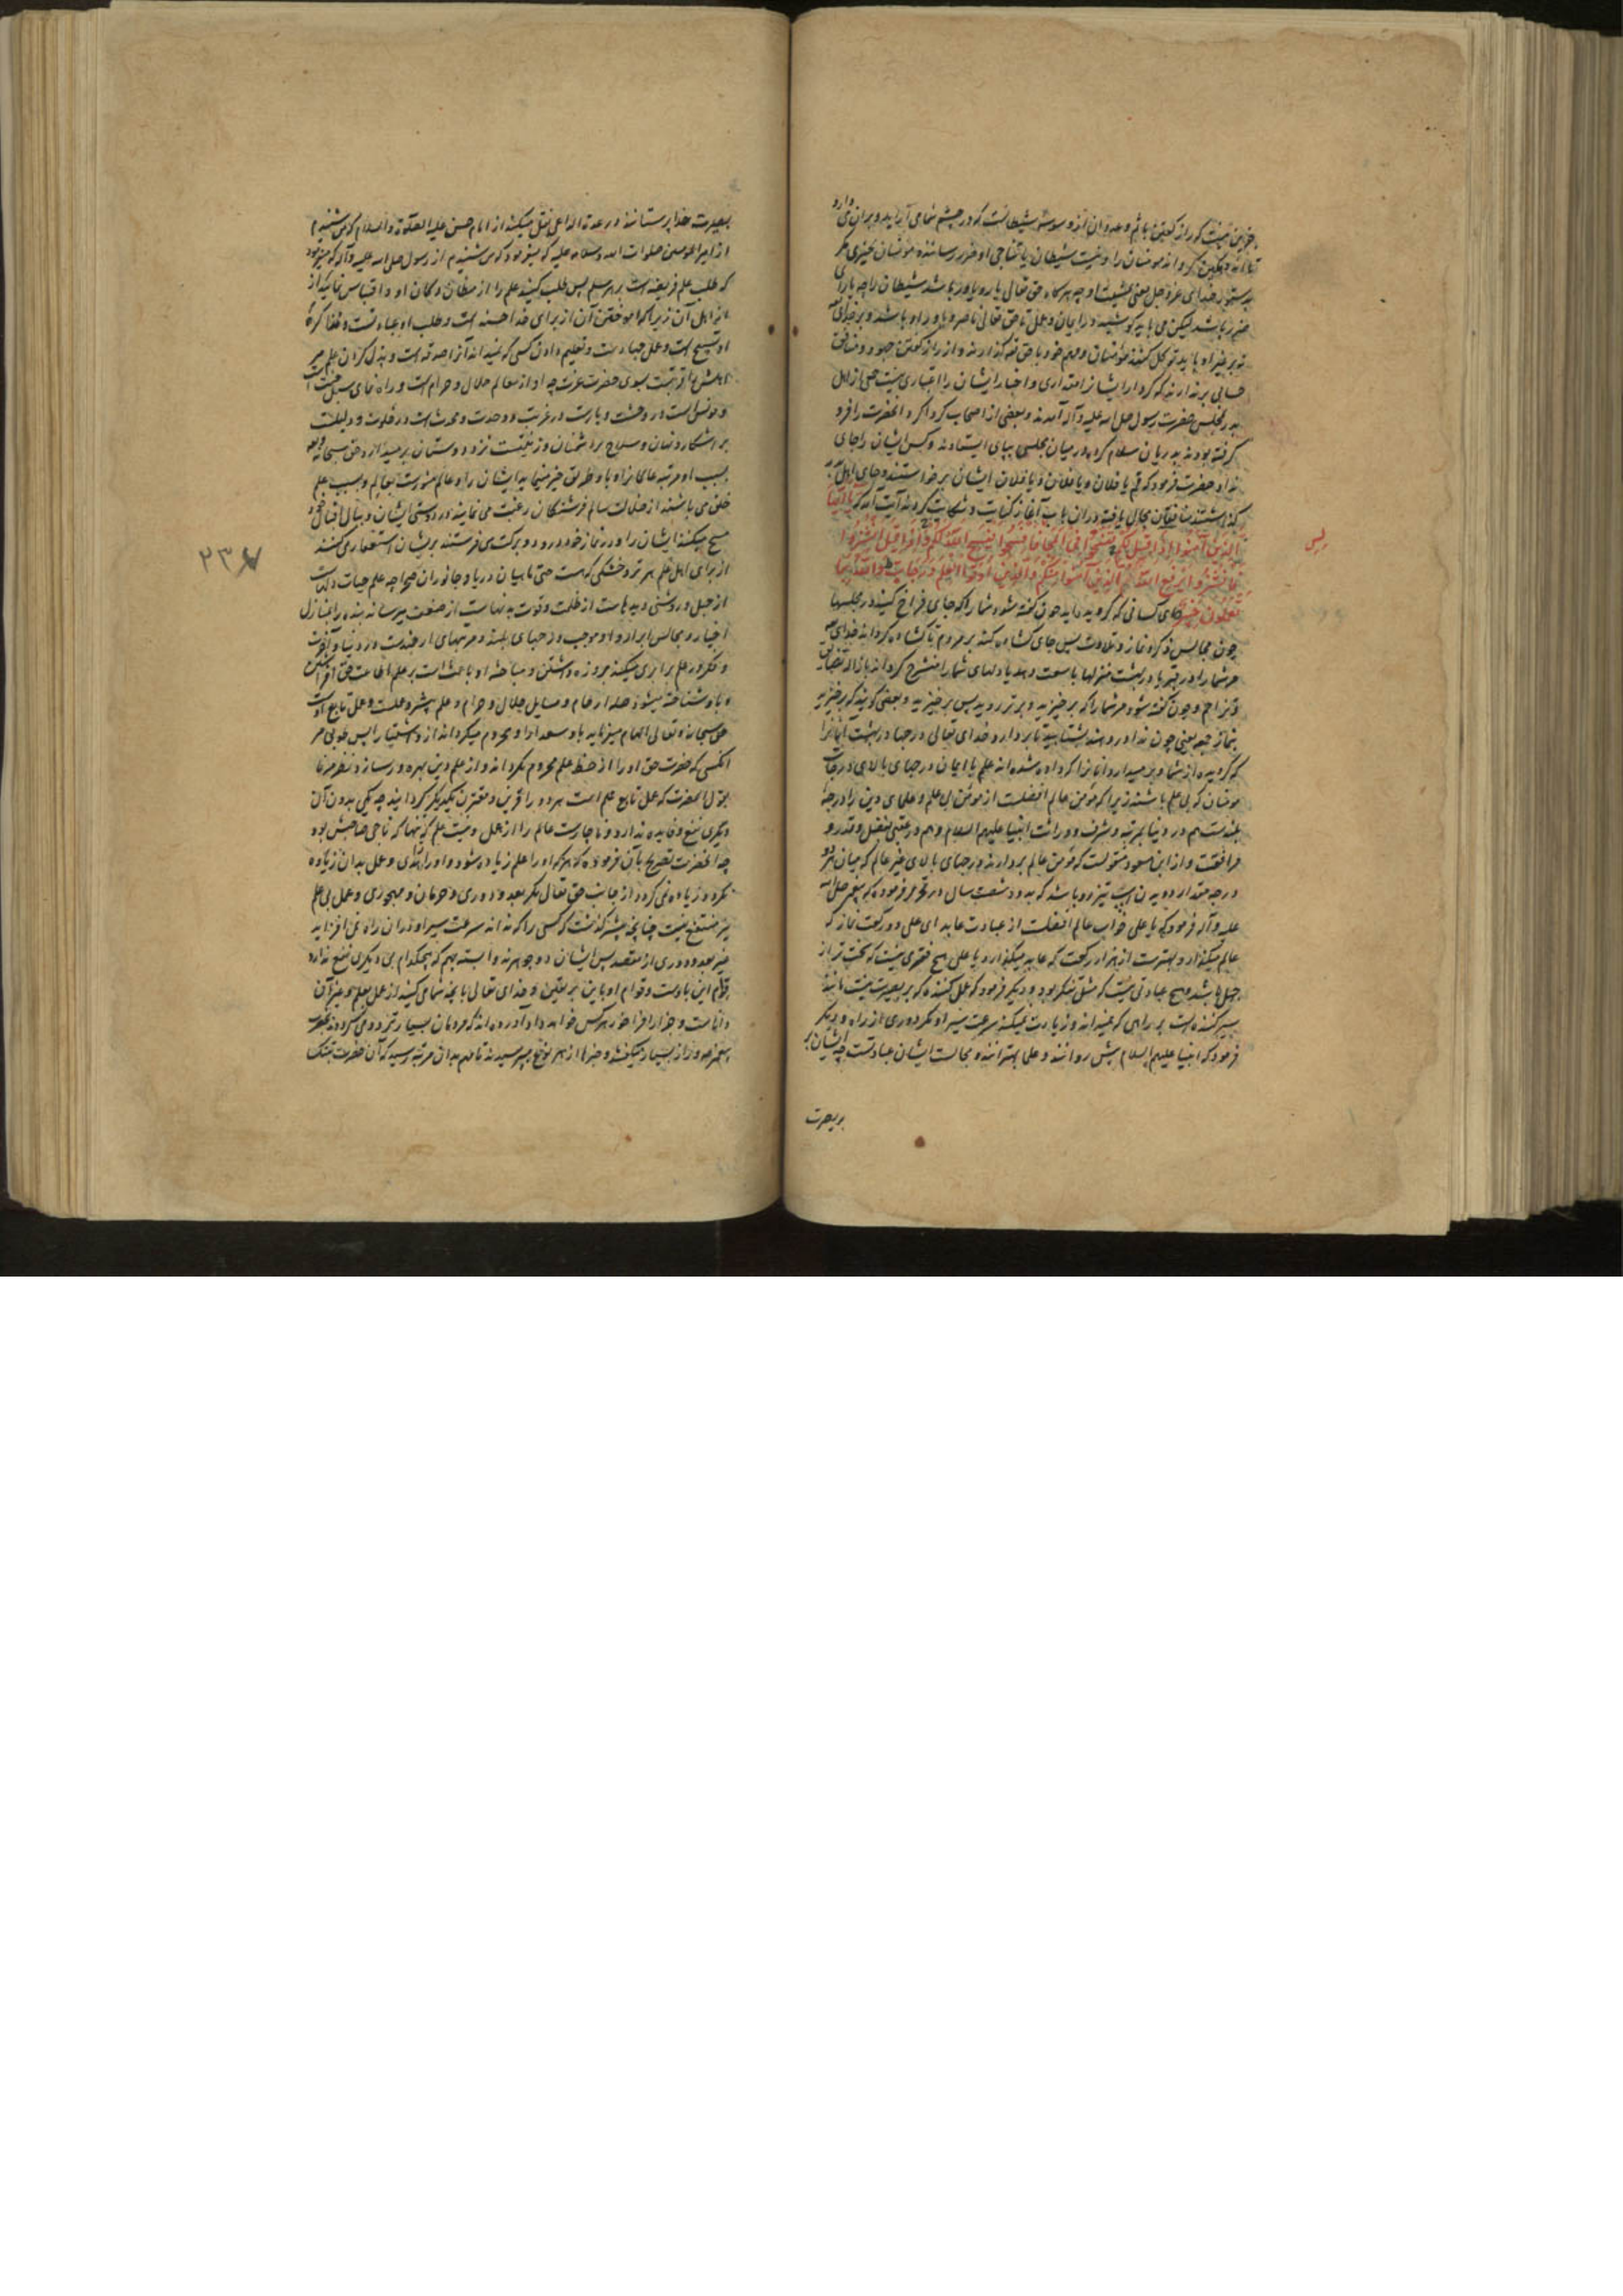 جزین نیست که راز گفتن باثم و عدوان از وسوسهٔ شیطانست که در چشم شما می‌آراید و بران می‌دارد
تا اندوهگین گرداند مومنان را و نیست شیطان یا تناجی او ضرر رساننده مومنان بچیزی مگر
بدستوری خدای عز و جل یعنی بمشیت او چه هرگاه حق تعالی یار و یاور باشد شیطان را چه یارای
ضرر باشد لیکن می باید کوشید در ایمان و عمل تا حق تعالی ناصر و یاور او باشد و بر خدای
نه بر غیر او باید توکل کنند مؤمنان و مهم خود با حق گذارند و از راز گفتن جهود و منافق
حسابی برندارند که کردار ایشانرا مقداری و اخبار ایشان را اعتباری نیست جمعی از اهل
بدر بمجلس حضرت رسول صلی الله علیه و آله آمدند و بعضی از اصحاب گرداگرد آنحضرت را فرو
گرفته بودند بدریان سلام کرده در میان مجلس بپای ایستادند و کس ایشان را جای
نداد حضرت فرمود که قم یا فلان و یا فلان و یا فلان ایشان برخواستند و جای اهل بدر
گذاشتند منافقان مجال یافته دران باب آغاز کنایت و شکایت کردند آیت آمد که یا ایها
الذین آمنوا اذا قیل لکم تفسحوا فی المجالس فافسحوا یفسح الله لکم و اذا قیل انشزوا
فانشزوا یرفع الله الذین آمنوا منکم و الذین اوتوا العلم درجات و الله بما
تعملون خبیر ای کسانی که گرویده‌اید چون گفته شود شما را که جای فراخ کنید در مجلسها
چون مجالس ذکر و نماز و تلاوت پس جای گشاده کنید بر مردم تا گشاده گرداند خدای
مر شما را در قبر یا در بهشت منزلها با وسعت دهد یا دلهای شما را منشرح گرداند
و چون گفته شود مر شما را که برخیزید و برتر روید پس برخیزید و بعضی گویند که برخیزید
بنماز جمعه یعنی چون ندا در دهند بشتابید تا بردارد خدای تعالی درجها در بهشت آنانرا
که گرویده‌اند از شما و بر میدارد آنانرا که داده شده‌اند علم با ایمان درجهای بالای درجات
مومنان که بی علم باشند زیرا که مؤمن عالم افضلست از مومن بی علم و علمای دین را درجهٔ
بلندست هم در دنیا بمرتبه و شرف و وراثت انبیا علیهم السلام و هم در عقبی بفضل و قدر و
مرافقت و از ابن مسعود منقولست که مؤمن عالم بردارند درجهای بالای غیر عالم که میان هر دو
درجه مقدار دویدن اسب تیزرو باشد که بدود شصت سال و در تحریر فرموده که پیغمبر صلی الله
علیه و آله فرمود که یا علی خواب عالم افضلست از عبادت عابد ای علی دو رکعت نماز که
عالم میگذارد بهترست از هزار رکعت که عابد میگذارد یا علی هیچ فقری نیست که سخت تر از
جهل باشد و هیچ عبادتی نیست که مثل تفکر بود و دیگر فرمود که عمل کننده که بر بصیرت نیست مانند
سیر کننده است بر راهی که نمیداند و زیادت نمیکند سرعت سیر او مگر دوری از راه و دیگر
فرمود که انبیا علیهم السلام پیش روانند و علما مهترانند و مجالست ایشان عبادتست چه ایشان بر
بر بصیرت
پس
بصیرت خدا پرستانند و در عدة الداعی نقل میکند از امام حسن علیه الصلوة و السلام که من شنیدم
از امیر المومنین صلوات الله و سلامه علیه که میفرمود که من شنیدم از رسول صلی الله علیه و آله که میفرمود
که طلب علم فریضه است بر هر مسلم پس طلب کنید علم را از مظان و مکان او و اقتباس نمائید از
نزد اهل آن زیرا که آموختن آن از برای خدا حسنه است و طلب او عبادتست و مذاکرهٔ
او تسبیح است و عمل جهادست و تعلیم دادن کسی که نمیداند آنرا صدقه است و بذل کردن علم مر
اهلش را قربتست بسوی حضرت عزت چه او از معالم حلال و حرام است و راه نمای سبیل جنت است
و مونس است در وحشت و یارست در غربت و وحدت و محدث است در خلوت و دلیلست
بر آشکار و نهان و سلاح بر دشمنان و زینتست نزد دوستان بر میدارد حق سبحانه
بسبب او مرتبه عالمانرا و باو طریق خیر می‌نماید ایشان را و عالم منورست بعالم و بسبب علم
خلق می باشند از ضلالت سالم فرشتگان رغبت می نمایند در دوستی ایشان و ببال اقبال خود
مسح میکنند ایشان را و در نماز خود درود و برکت می فرستند بریشان و استغفار می کنند
از برای اهل علم هر تر و خشکی که هست حتی ماهیان دریا و جانوران صحرا چه علم حیات دلهاست
از جهل و روشنی دیدهاست از ظلمت و قوت بدنهاست از ضعف میرساند بنده را بمنازل
اخیار و مجالس ابرار و او موجب درجهای بلند و مرتبهای ارجمندست در دنیا و آخرت
و فکر در علم برابری میکند بروزه داشتن و مباحثه او باعث است بر علم اطاعت حق
و باو شناخته میشود صله ارحام و مسایل حلال و حرام و علم پیشرو عملست و عمل تابع اوست
حق سبحانه و تعالی الهام میفرماید باو سعدا را و محروم میگرداند از و اشقیا را پس خوبی مر
آنکسی که حضرت حق او را از حظ علم محروم نگرداند و از علم دین بهره‌ور سازد
بقول آنحضرت که عمل تابع علم است هر دو را قرین و مقترن یکدیگر گردانید چه یکی بدون آن
دیگری نفع و فایده ندارد و ناچارست عالم را از عمل و نیست علم به تنها که ناجی صاحبش بود
چه آنحضرت تصریح بآن فرموده که هر که او را علم زیاده شود و او را هدی و عمل بدان زیاده
نگردد زیاده نمی گردد از جانب حق تعالی مگر بعد و دوری و حرمان و مهجوری و عمل بی علم
نیز منتفع نیست چنانچه پیشتر گذشت که کسی راکه نداند سرعت سیر او دران راه نمی افزاید
غیر بعد و دوری از مقصد پس ایشان دو جوهرند وابسته بهم که هیچکدام بی دیگری نفع ندارد
قوام این باوست و قوام او باین بر یقین و خدای تعالی بانچه شما می کنید از عمل بعلم و غیر آن
داناست و جزا در خور هر کس خواهد داد آورده‌اند که مردمان بسیار تردد می کردند بحضرت
پیغمبر و راز بسیار میگفتند و خبرها از هر نوع می پرسیدند تا مهم بدان مرتبه رسید که آن حضرت بتنگ
۲۳۷